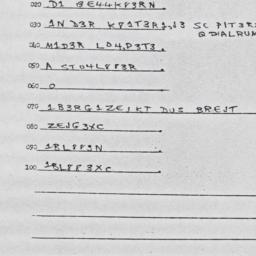 020 D1 BE44K83RN
030 1N D3R K81T3R1,13 SC PIT3R:
QDIALRUM
040 M1D3R L04P3T3.
050 A ST04L8P3R
060 O
070 1B3RG1ZEJKT DUS BREJT
080 ZEJG3XC
090 1BL889N
200 1BL883XC